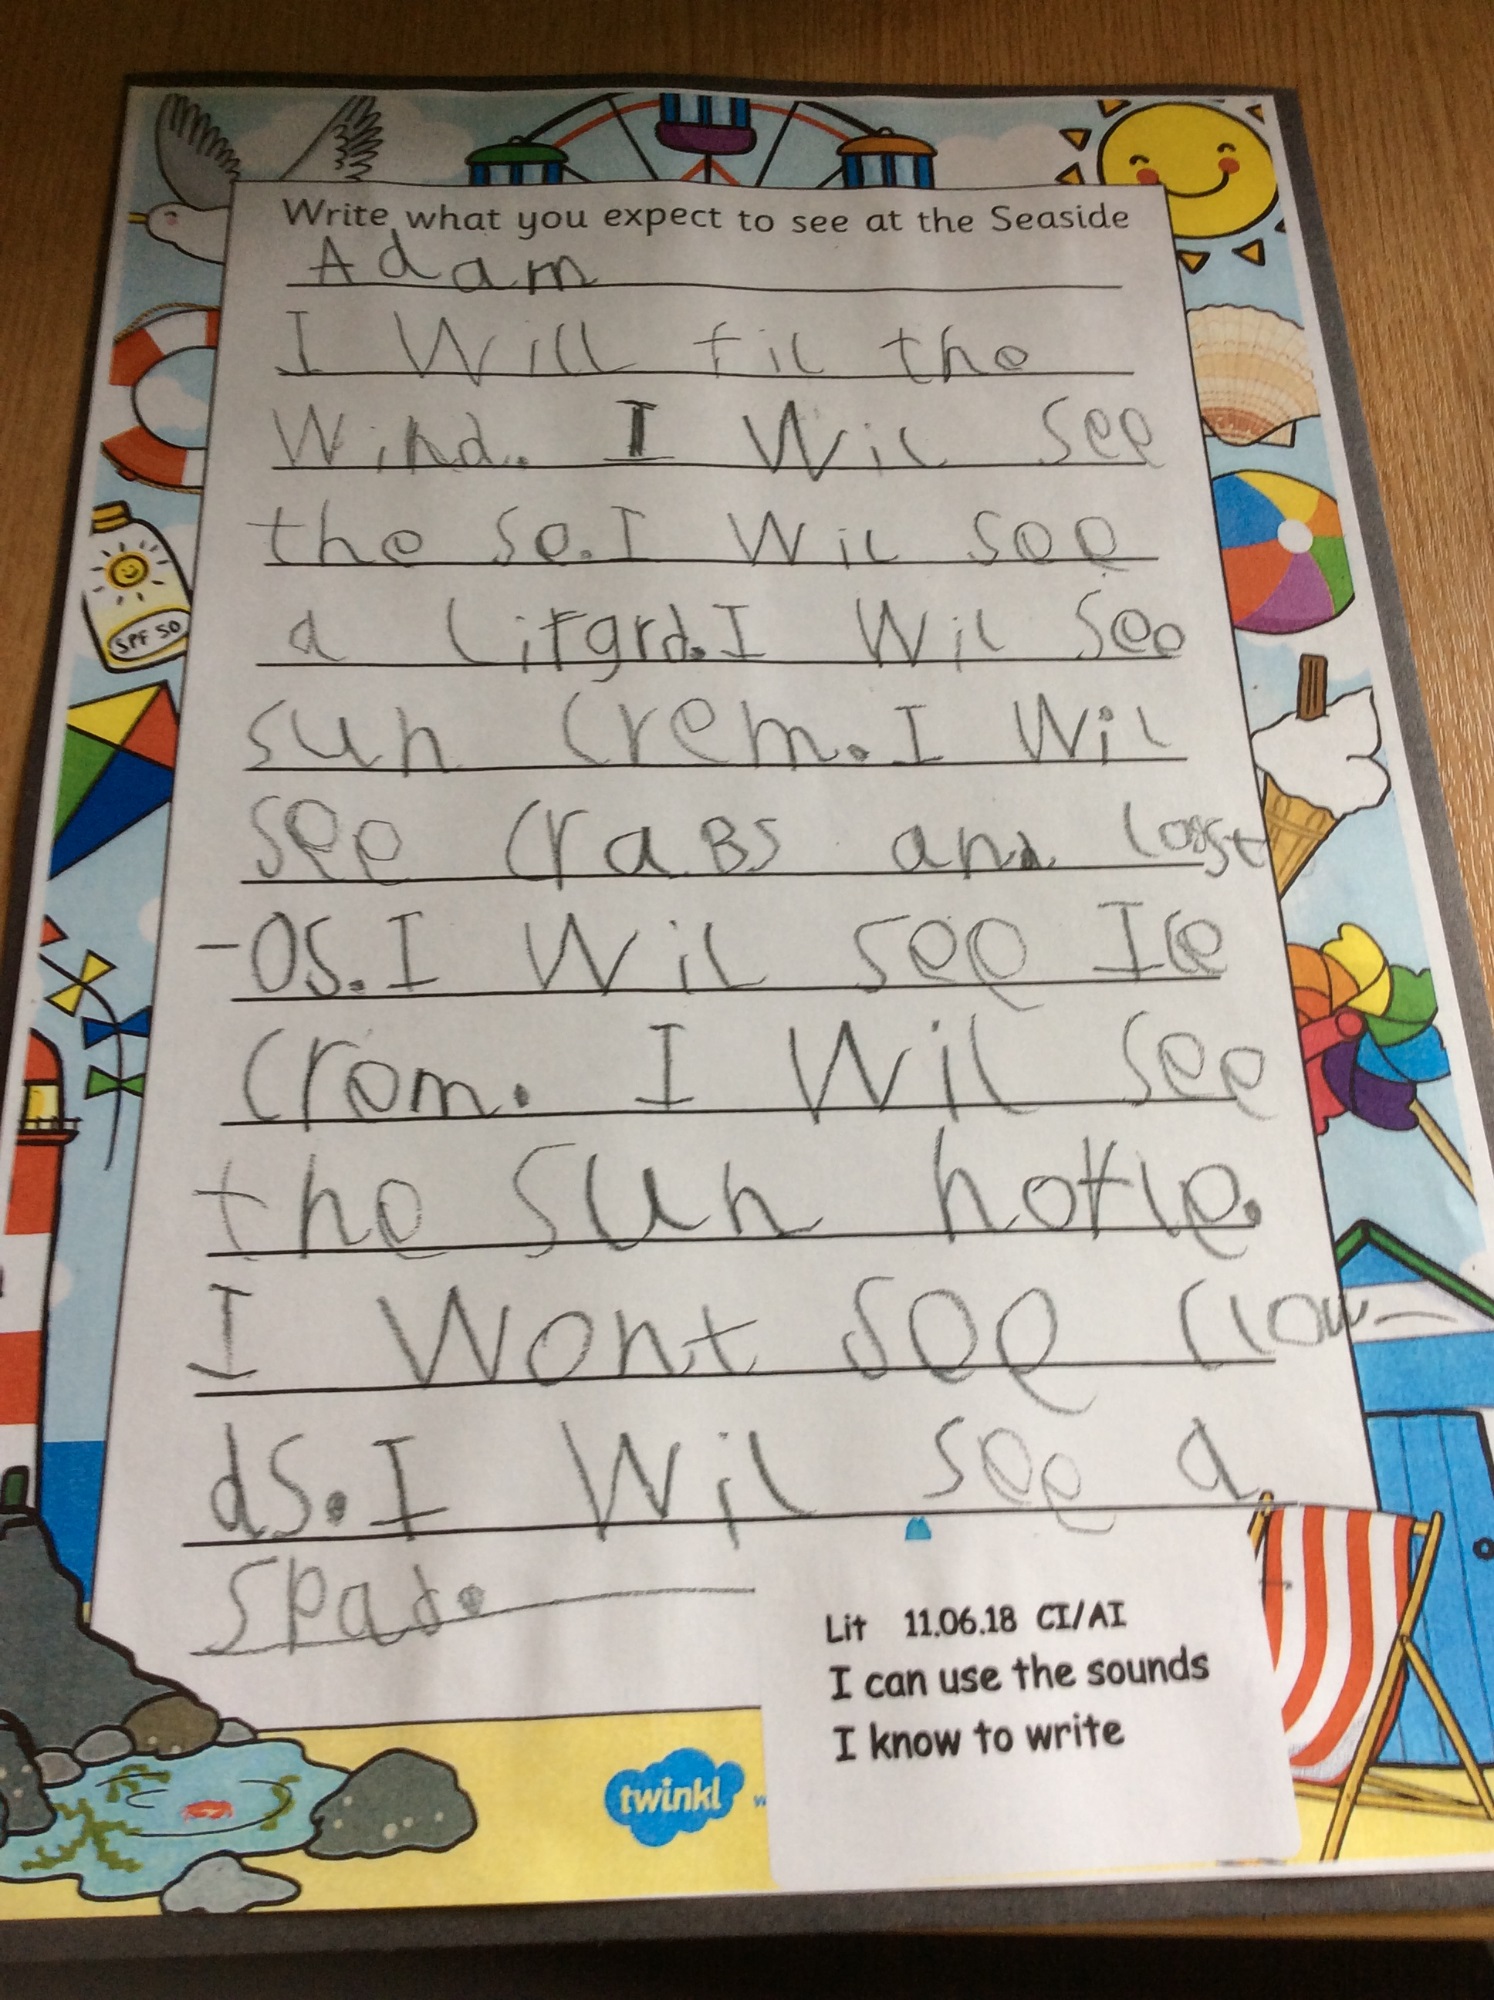 Write what you expect to see at the Seaside
Adam
I Will fil the
Wind. I Wil see
the se. I Wil see
a lifgrd. I Wil see
sun crem. I Wil
see craBs and lobst
-os. I Wil see Ice
crem. I Wil see
the sun hotle.
I Wont see clou-
ds. I Wil see a
spad.
SPF 50
Lit 11.06.18 CI/AI
I can use the sounds
I know to write
twinkl